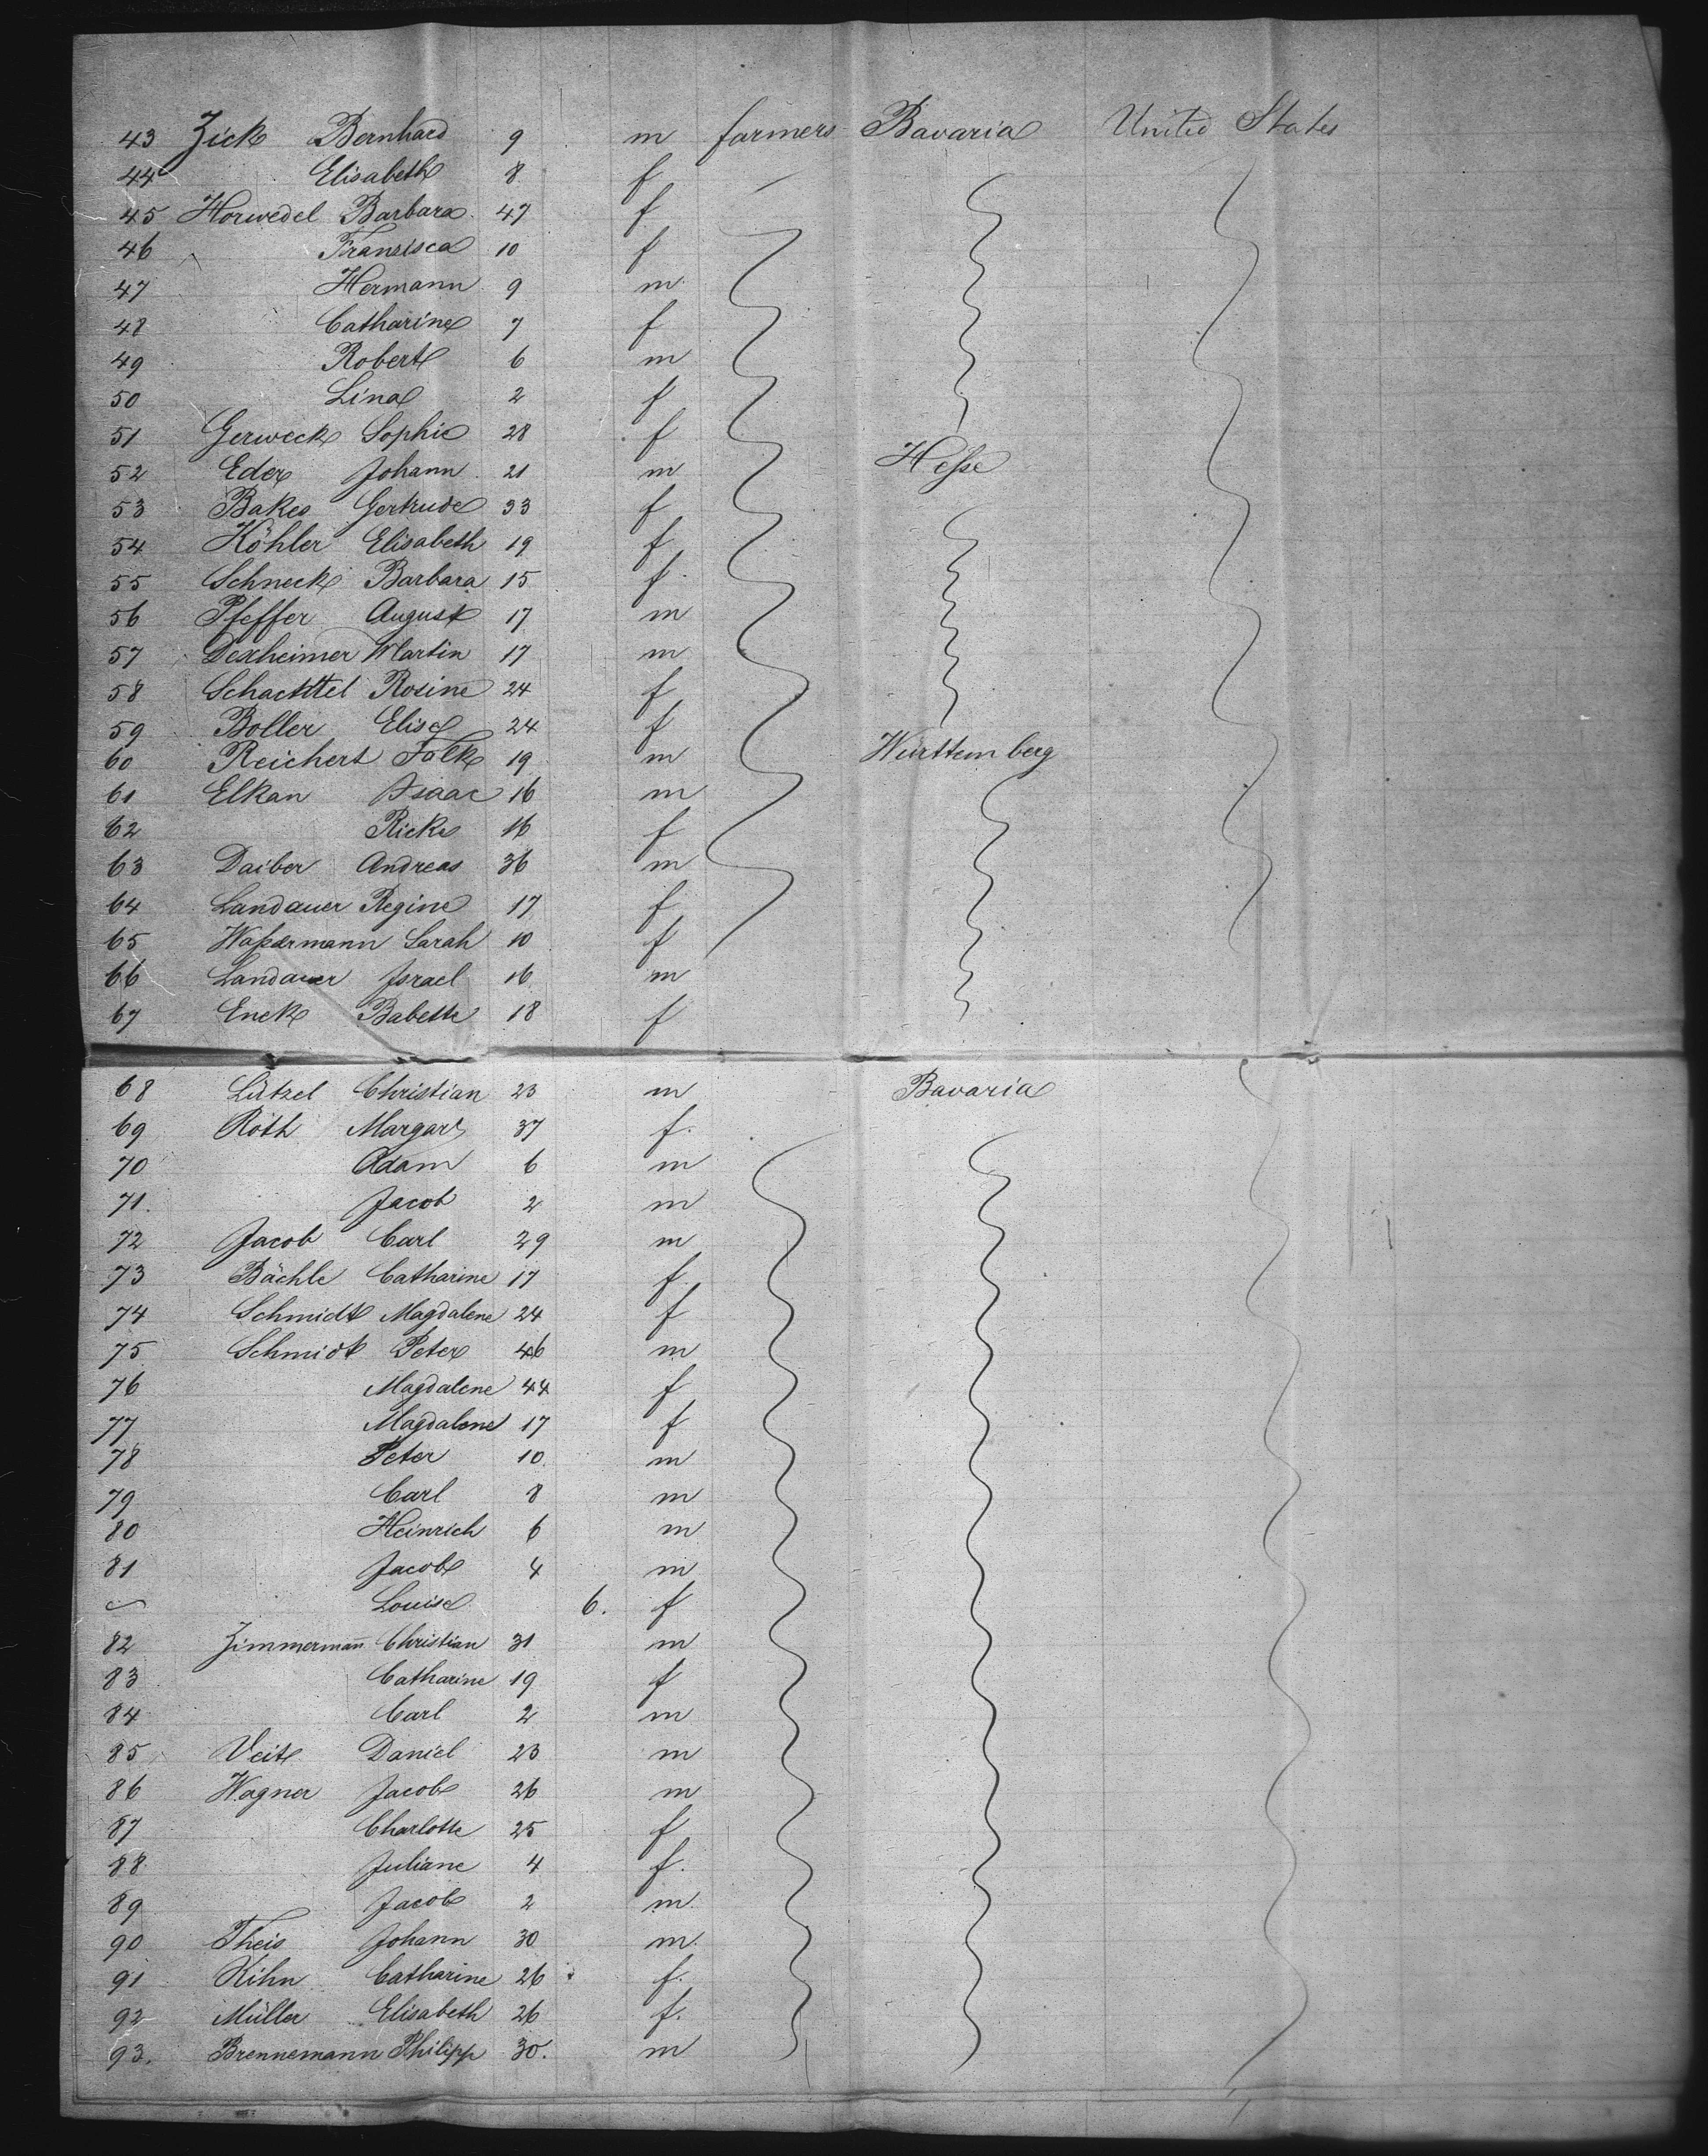 43 Zick Bernhard 9 m farmers Bavaria United States
44 Elisabeth 8 f
45 Horwedel Barbara 47 f
46 Franzisca 10 f
47 Hermann 9 m
48 Catharine 7 f
49 Robert 6 m
50 Lina 2 f
51 Gerweck Sophie 28 f
52 Eder Johann 21 m Hesse
53 Bakes Gertrude 33 f
54 Köhler Elisabeth 19 f
55 Schneck Barbara 15 f
56 Pfeffer August 17 m
57 Dexheimer Martin 17 m
58 Rosine 24 f
59 Boller Elise 24 f
60 Reichert Falk 19 m Württemberg
61 Elkan Isaac 16 m
62 Ricke 16 f
63 Daiber Andreas 36 m
64 Landauer Regine 17 f
65 Wassermann Sarah 10 f
66 Landauer Israel 16 m
67 Enck Babette 18 f
68 Lützel Christian 23 m Bavaria
69 Roth Margart 37 f.
70 Adam 6 m
71. Jacob 2 m
72 Jacob Carl 29 m
73 Bächle Catharine 17 f.
74 Schmidt Magdalene 24 f
75 Schmidt Peter 46 m
76 Magdalene 44 f
77 Magdalene 17 f
78 Peter 10 m
79 Carl 8 m
80 Heinrich 6 m
81 Jacob 4 m
Louise 6. f
82 Zimmermann Christian 31 m
83 Catharine 19 f
84 Carl 2 m
85 Veit Daniel 23 m
86 Wagner Jacob 26 m
87 Charlotte 25 f
88 Juliane 4 f.
89 Jacob 2 m.
90 Theis Johann 30 m.
91 Kihn Catharine 26 f.
92 Müller Elisabeth 26 f.
93. Brennemann Philipp 30. m